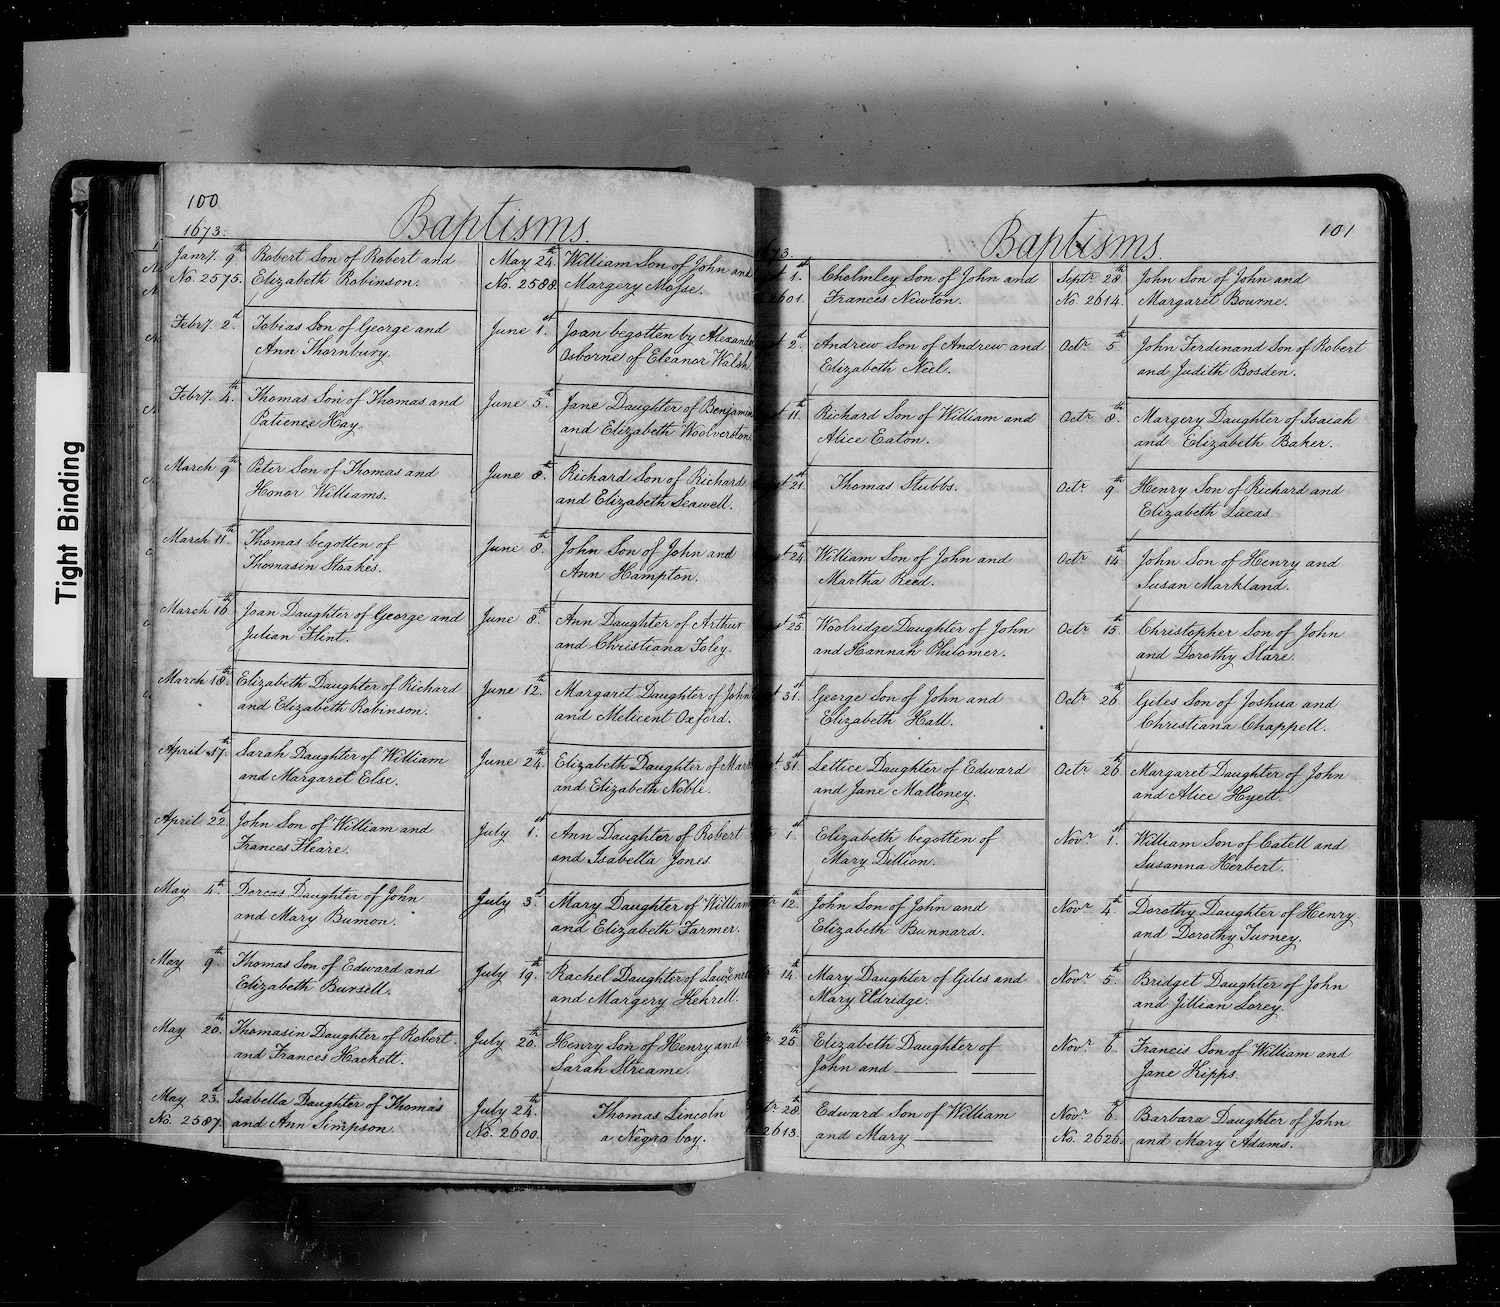 Tight Binding
100
Baptisms.
1673.
Janry. 9th Robert Son of Robert and
No. 2575. Elizabeth Robinson.
Febry. 2d. Tobias Son of George and
Ann Thornbury.
Febry. 4th Thomas Son of Thomas and
Patience Hay.
March 9th Peter Son of Thomas and
Honor Williams.
March 11th Thomas begotten of
Thomasin Stoakes.
March 16th Joan Daughter of George and
Julian Flint.
March 18th Elizabeth Daughter of Richard
and Elizabeth Robinson.
April 17th Sarah Daughter of William
and Margaret Else.
April 22d. John Son of William and
Frances Fleare.
May 4th Dorcas Daughter of John
and Mary Bumon.
May 9th Thomas Son of Edward and
Elizabeth Bursell.
May 20th Thomasin Daughter of Robert
and Frances Hackett.
May 23d. Isabella Daughter of Thomas
No. 2587. and Ann Simpson.
May 24th William Son of John and
No. 2588. Margery Mosse.
June 1st Joan begotten by
Osborne of Eleanor Walsh
June 5th Jane Daughter of Benjamin
and Elizabeth Woolverston
June 8th Richard Son of Richard
and Elizabeth Seawell.
June 8th John Son of John and
Ann Hampton.
June 8th Ann Daughter of Arthur
and Christiana Foley.
June 12th Margaret Daughter of John
and Melicent Oxford.
June 24th Elizabeth Daughter of Mark
and Elizabeth Noble.
July 1st Ann Daughter of Robert
and Isabella Jones
July 3d. Mary Daughter of William
and Elizabeth Farmer.
July 19th Rachel Daughter of
and Margery Kehrell.
July 20th Henry Son of Henry and
Sarah Streame.
July 24th Thomas Lincoln
No. 2600. a Negro boy.
101
Baptisms.
1st Cholmley Son of John and
2601. Frances Newton.
2d. Andrew Son of Andrew and
Elizabeth Neil.
11th Richard Son of William and
Alice Eaton.
21st Thomas Stubbs.
24th William Son of John and
Martha Reed.
25th Woolridge Daughter of John
and Hannah Philomer.
31st George Son of John and
Elizabeth Hall.
31st Lettice Daughter of Edward
and Jane Malloney.
1st Elizabeth begotten of
Mary Dittion.
12th John Son of John and
Elizabeth Bunnard.
14th Mary Daughter of Giles and
Mary Eldridge.
25th Elizabeth Daughter of
John and
28th Edward Son of William
2613. and Mary
Septr. 28th John Son of John and
No 2614. Margaret Bourne.
Octr. 5th John Ferdinand Son of Robert
and Judith Bosden.
Octr. 8th Margery Daughter of Isaiah
and Elizabeth Baker.
Octr. 9th Henry Son of Richard and
Elizabeth Lucas
Octr 14th John Son of Henry and
Susan Markland.
Octr 15th Christopher Son of John
and Dorothy Stare.
Octr 26th Giles Son of Joshua and
Christiana Chappell.
Octr 26th Margaret Daughter of John
and Alice Hyett.
Novr. 1st William Son of Catell and
Susanna Herbert.
Novr 4th Dorothy Daughter of Henry
and Dorothy Turney.
Novr. 5th Bridget Daughter of John
and Jillian Lorey.
Novr. 6th Francis Son of William and
Jane Kipps.
Novr. 6th Barbara Daughter of John
No. 2626. and Mary Adams.